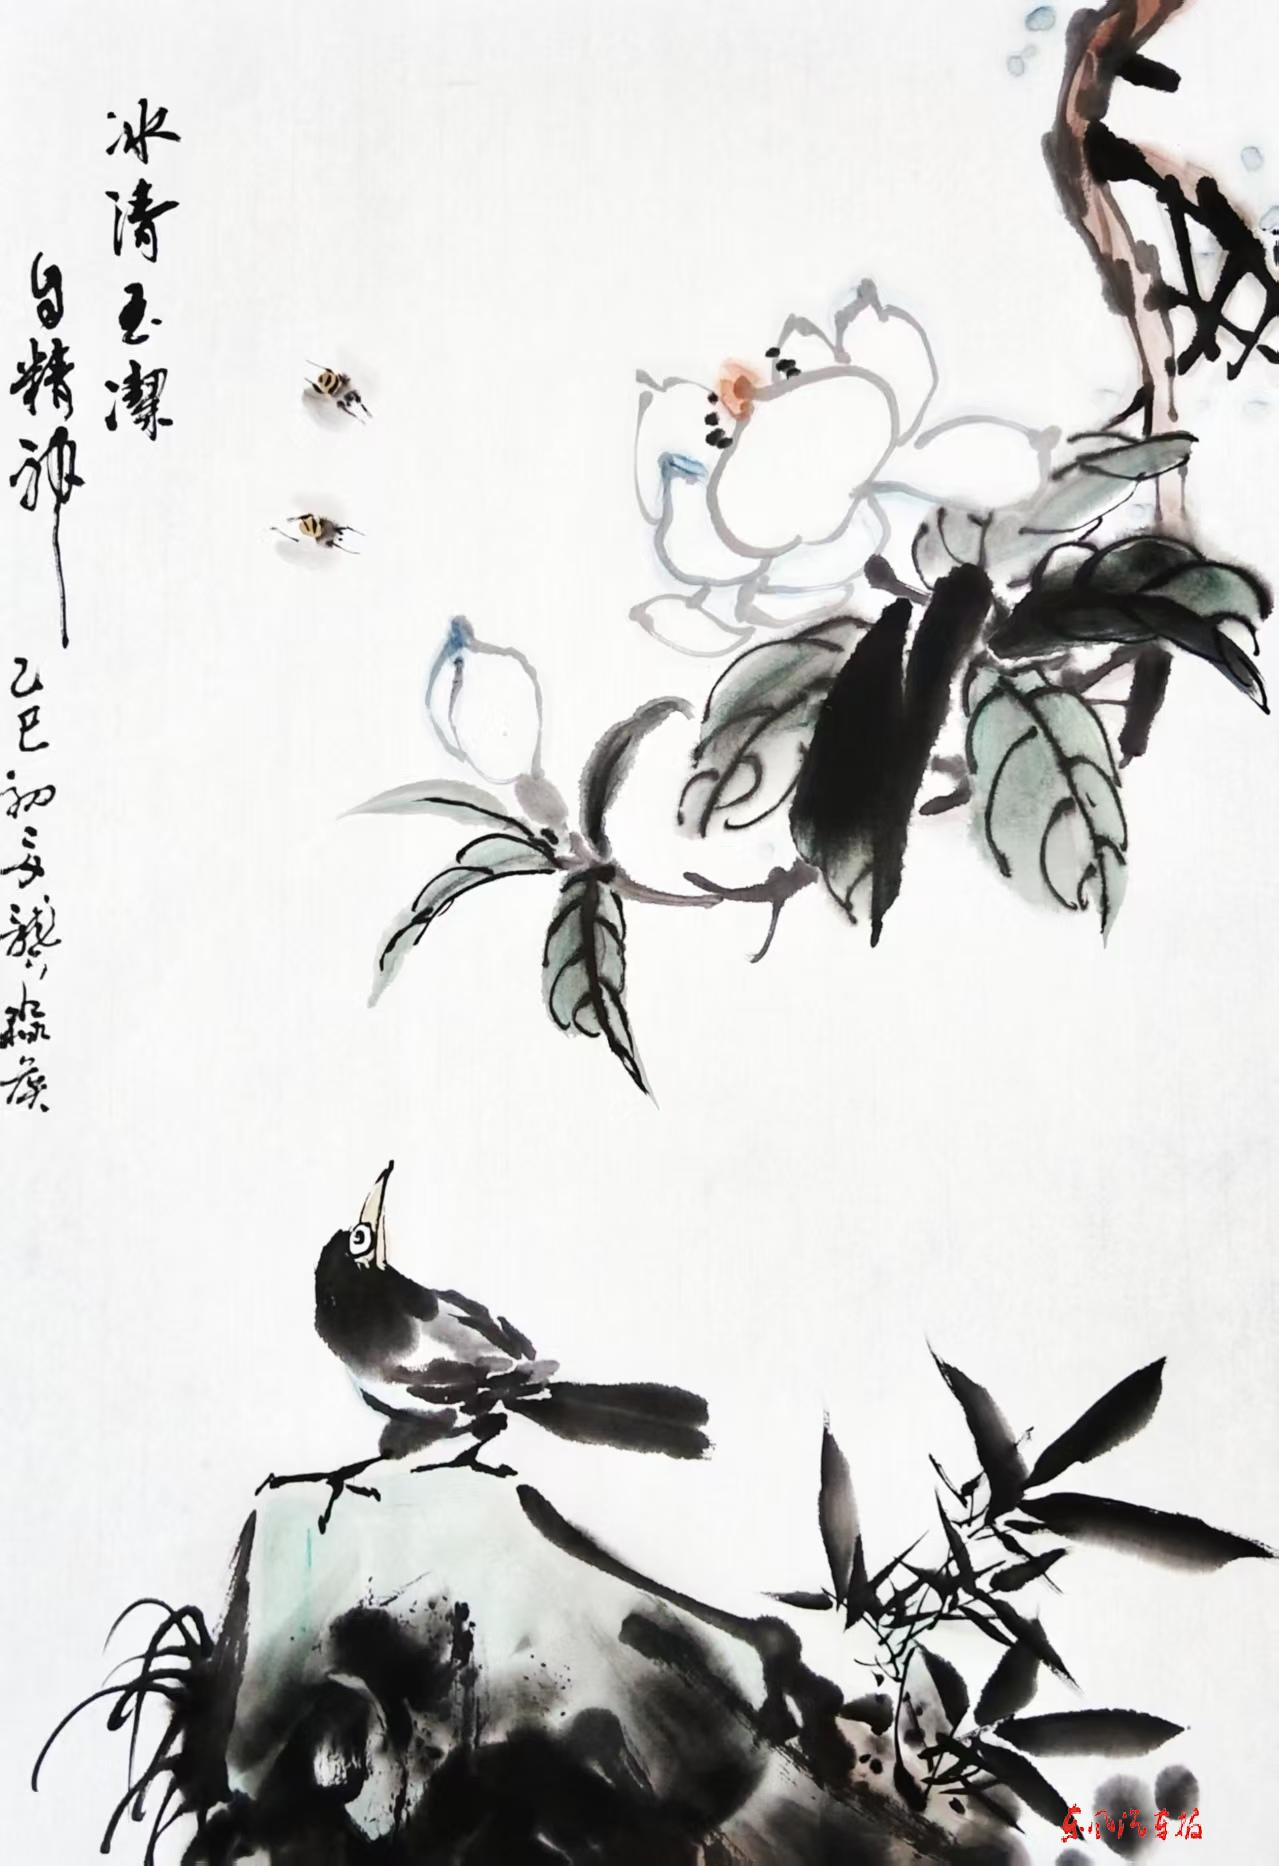 冰清玉潔
自精神
乙巳初夏龔
东风汽车报